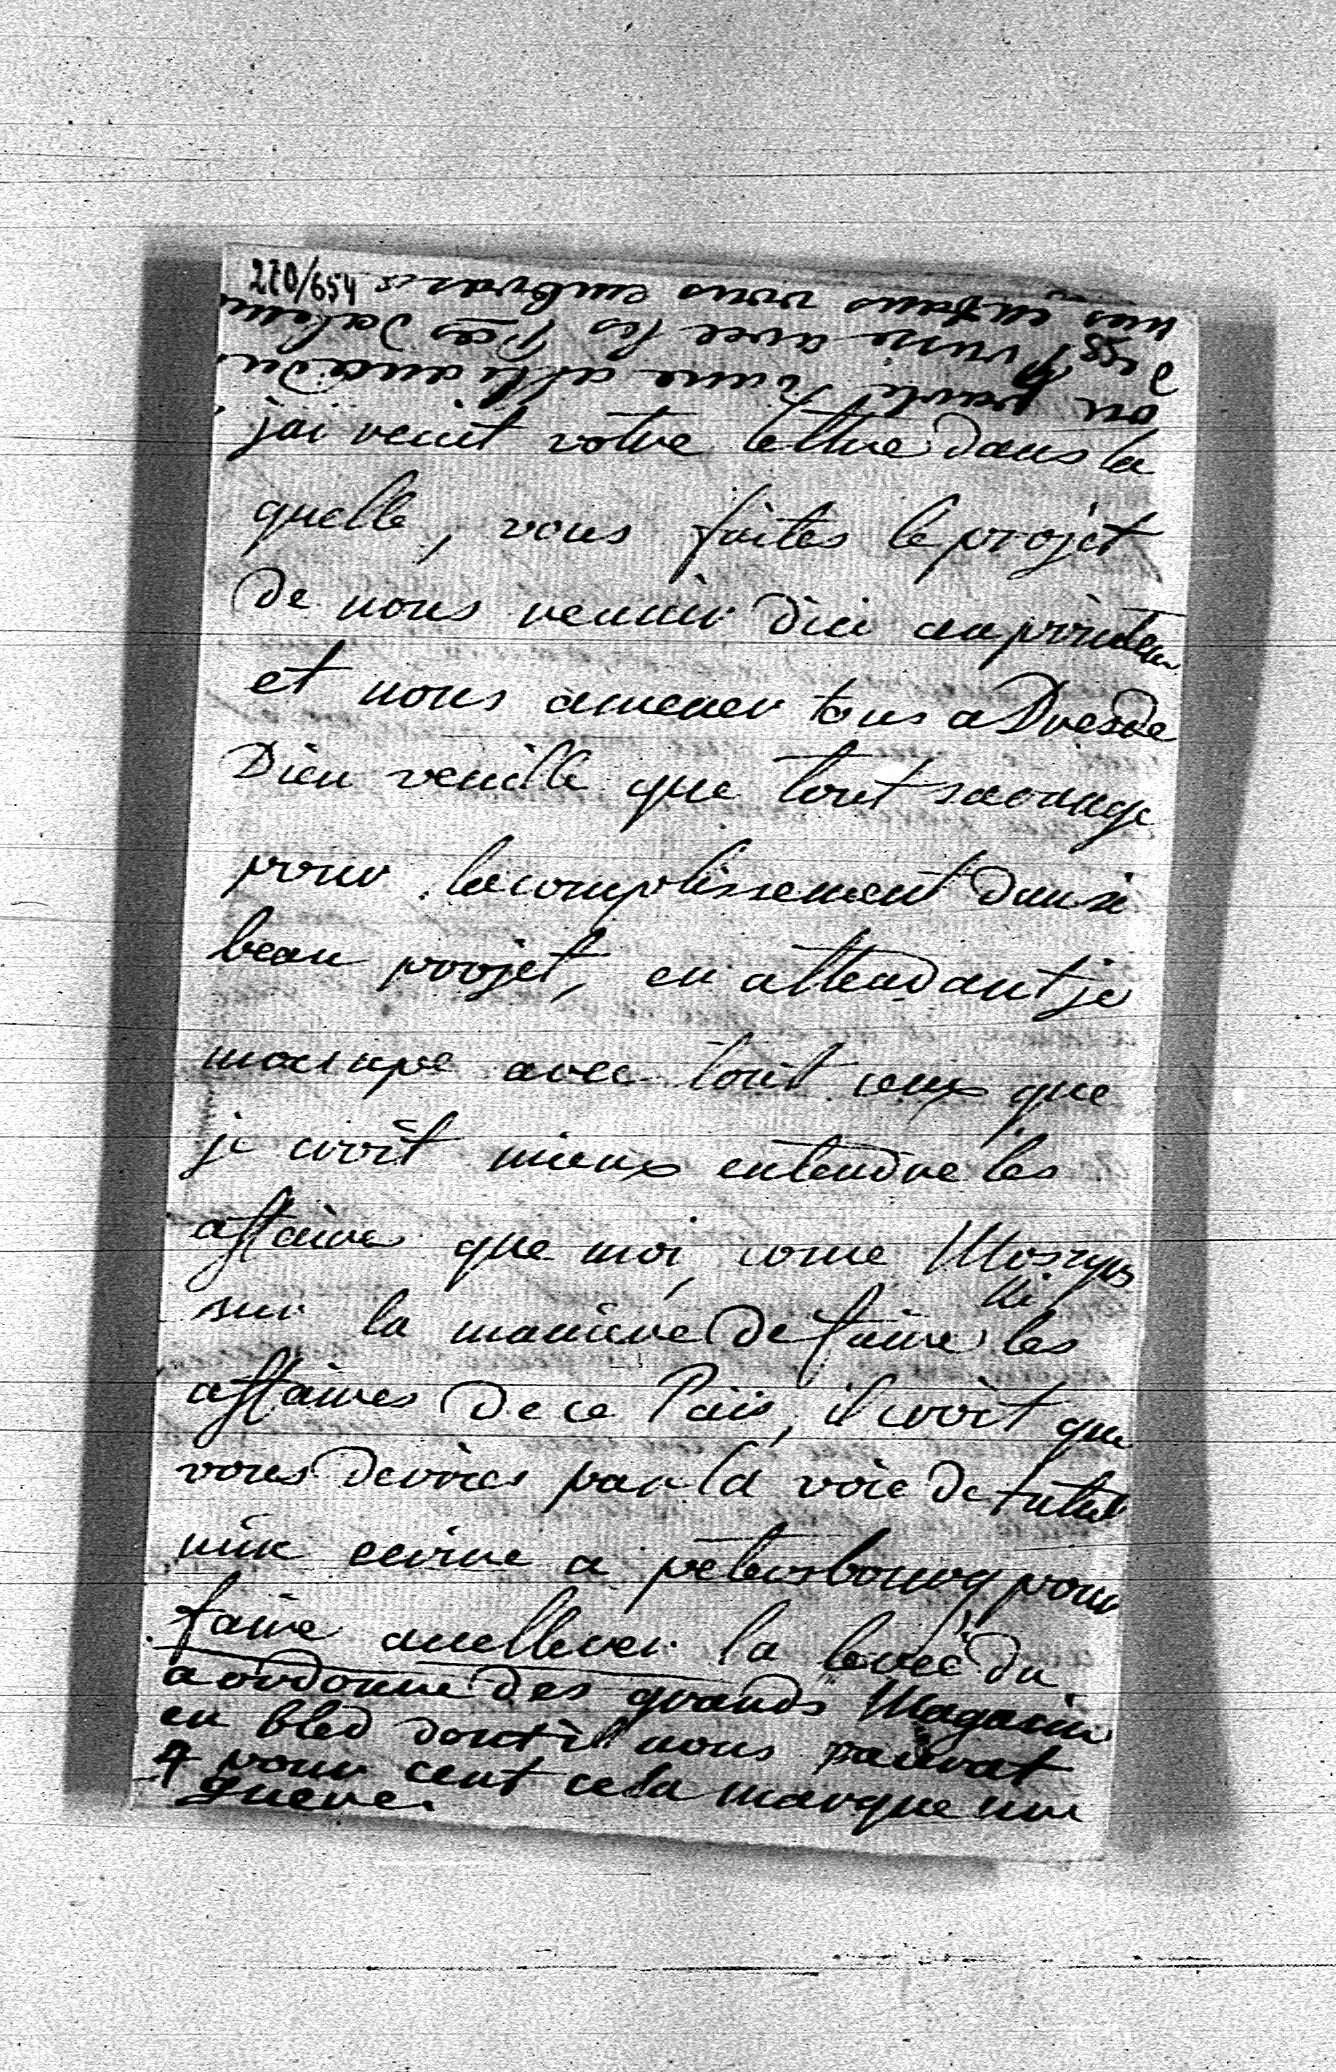 220/654
on parle d'une alliance du
Prusse avec les Pces d'alem
mes enfans vous embrasse
jai recut votre lettre dans la
quelle, vous faites le projet
de nous reunir dici au printems
et nous amener tous a Dresde
Dieu veuille que tout sarange
pour lacomplissement dun si
beau projet, en attendant je
mocupe avec tout ceux que
je croît mieux entendre les
affaire que moi, come Moszyns
ki
sur la maniere de faire les
affaires de ce Païs, il croit que
vous devries par la voie de
ecrire a petersbourg pour
faire la levée du
a ordonne des grands Magasin
en bled dont il nous paierat
4 pour cent cela marque une
guere.